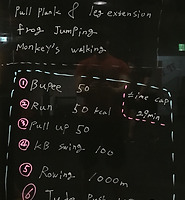 Pull Plank & leg extension
frog Jumping
Monkey's walking
① Bupee 50
② Run 50 kcal
time cap
29min
③ Pull up 50
④ KB swing 100
⑤ Rowing 1000m
⑥